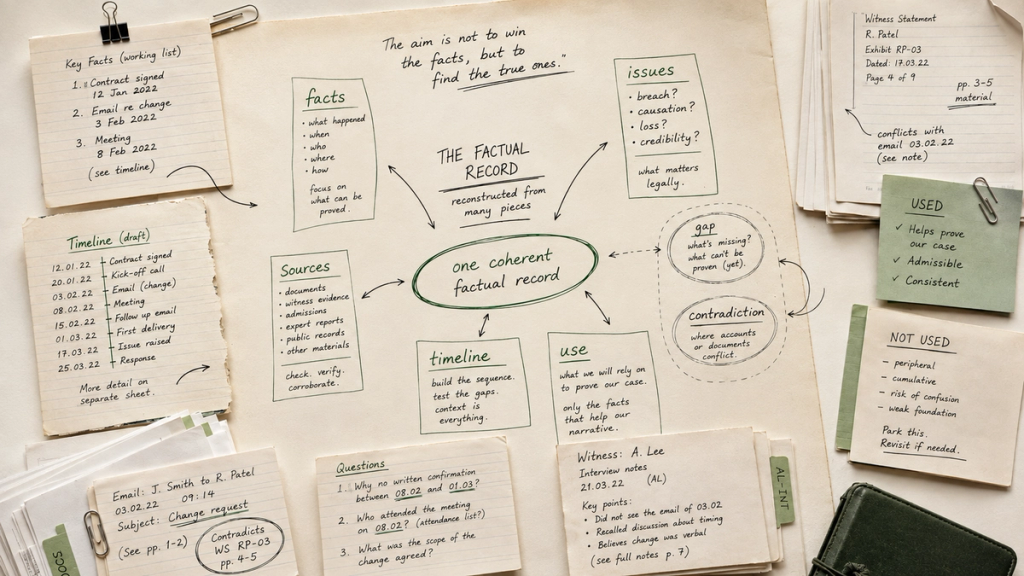 Key Facts (working list)
1. Contract signed
12 Jan 2022
2. Email re change
3 Feb 2022
3. Meeting
8 Feb 2022
(see timeline)
The aim is not to win
the facts, but to
find the true ones."
facts
• what happened
• when
• who
• where
• how
focus on
what can be
proved.
THE FACTUAL
RECORD
reconstructed from
many pieces
issues
• breach?
• causation?
• loss?
• credibility?
what matters
legally.
Witness Statement
R. Patel
Exhibit RP-03
Dated: 17.03.22
Page 4 of 9
pp. 3-5
material
conflicts with
email 03.02.22
(see note)
USED
✓ Helps prove
our case
✓ Admissible
✓ Consistent
Timeline (draft)
12.01.22 Contract signed
20.01.22 Kick-off call
03.02.22 Email (change)
08.02.22 Meeting
15.02.22 Follow up email
01.03.22 First delivery
17.03.22 Issue raised
25.03.22 Response
More detail on
separate sheet.
Sources
• documents
• witness evidence
• admissions
• expert reports
• public records
• other materials
check. verify.
corroborate.
one coherent
factual record
gap
what's missing?
what can't be
proven (yet).
contradiction
where accounts
or documents
conflict.
timeline
build the sequence.
test the gaps.
context is
everything.
use
what we will rely on
to prove our case.
only the facts
that help our
narrative.
NOT USED
– peripheral
– cumulative
– risk of confusion
– weak foundation
Park this.
Revisit if needed.
DOCS
Email: J. Smith to R. Patel
03.02.22 09:14
Subject: Change request
(See pp. 1-2)
Contradicts
WS RP-03
pp. 4-5
Questions
1. Why no written confirmation
between 08.02 and 01.03?
2. Who attended the meeting
on 08.02? (attendance list?)
3. What was the scope of the
change agreed?
Witness: A. Lee
Interview notes
21.03.22 (AL)
Key points:
• Did not see the email of 03.02
• Recalled discussion about timing
• Believes change was verbal
(see full notes p. 7)
AL-INT